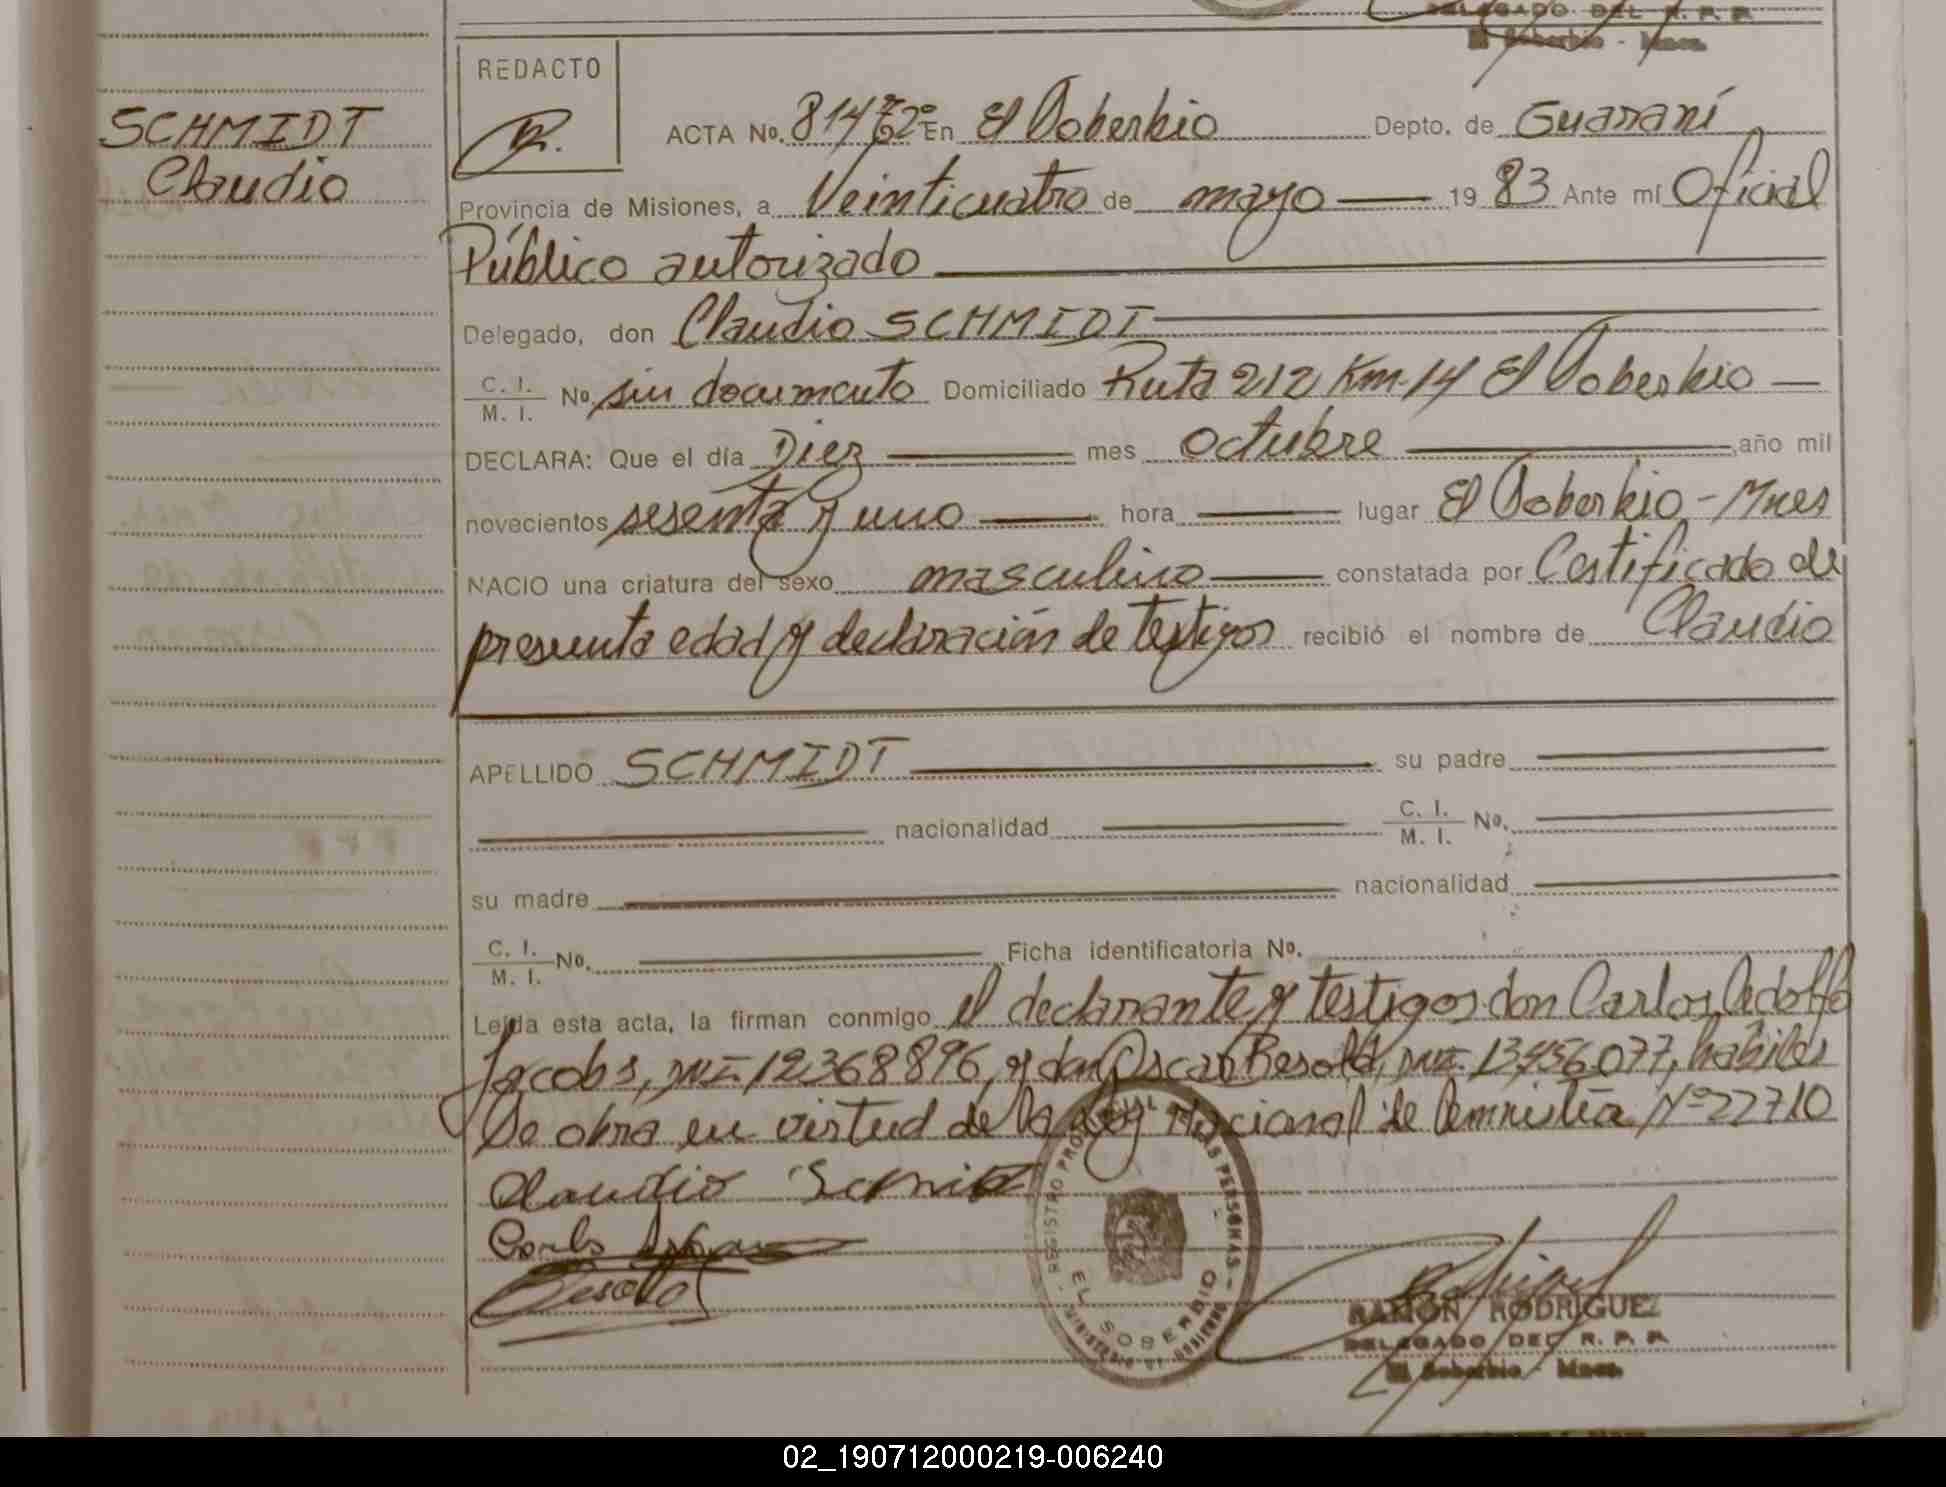 DELEGADO DEL R. P. P.
El Soberbio - Mnes.
REDACTO
SCHMIDT
Claudio
ACTA No. En El Soberbio Depto. de Guaraní
Provincia de Misiones, a Veinticuatro de mayo 1983 Ante mí Oficial
Público autorizado
Delegado, don Claudio SCHMIDT
C. I.
M. I. No. sin documento Domiciliado Ruta 212 Km. 14 El Soberbio
DECLARA: Que el día Diez mes octubre año mil
novecientos sesenta y uno hora lugar El Soberbio - Mnes
NACIO una criatura del sexo masculino constatada por Certificado de
presunta edad y declaración de testigos recibió el nombre de Claudio
APELLIDO SCHMIDT su padre
nacionalidad C. I.
M. I. No.
su madre nacionalidad
C. I.
M. I. No. Ficha identificatoria No.
Leída esta acta, la firman conmigo el declarante y testigos don Carlos Adolfo
Jacobs, MI. 12368896, y don Oscar Besold, MI. 13456077, hábiles
Se obra en virtud de la Ley Nacional de Amnistía Nº 22710
Claudio
Carlos
REGISTRO PERSONAS
EL SOBERBIO
RAMÓN RODRIGUEZ
DELEGADO DEL R. P. P.
El Soberbio - Mnes.
02_190712000219-006240